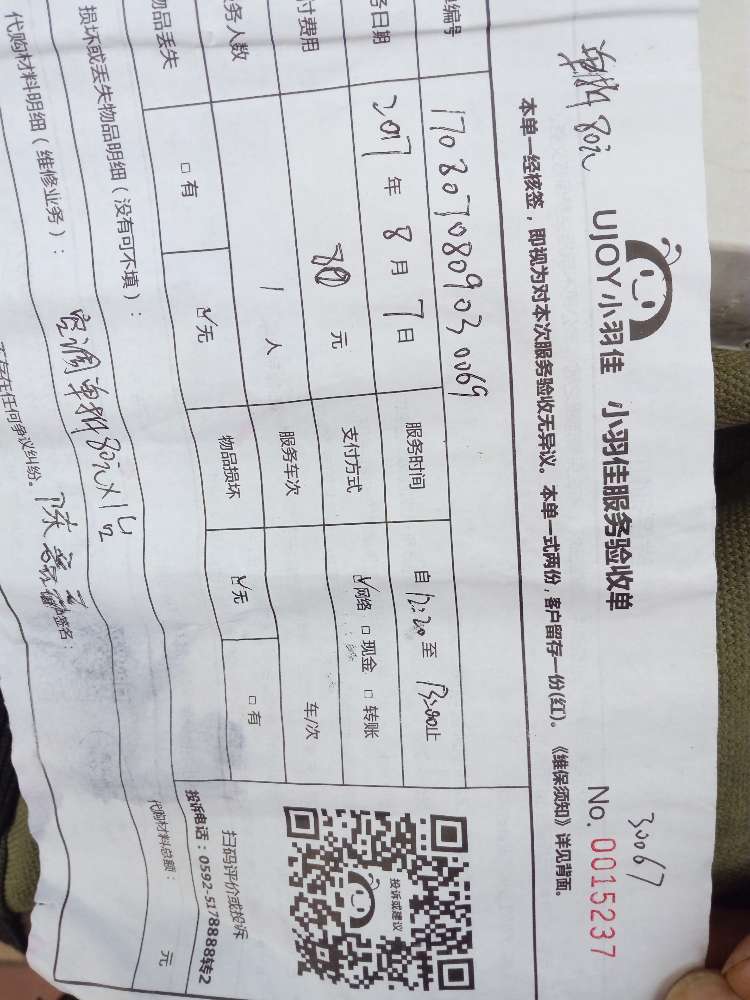 单拆80元
UJOY小羽佳 小羽佳服务验收单
30067
No. 0015237
本单一经核签，即视为对本次服务验收无异议。本单一式两份，客户留存一份(红)。《维保须知》详见背面。
单编号 1708070809030069
务日期 2017 年 8 月 7 日 服务时间 自 12:20 至 13:00 止
付费用 80 元 支付方式 ☑网络 □现金 □转账
务人数 1 人 服务车次 车/次
物品丢失 □有 ☑无 物品损坏 ☑无 □有
投诉或建议
扫码评价或投诉
投诉电话：0592-5178888转2
损坏或丢失物品明细（没有可不填）：
代购材料明细（维修业务）： 空调单拆80元×1台
代购材料总额： 元
不存在任何争议纠纷。
签名：